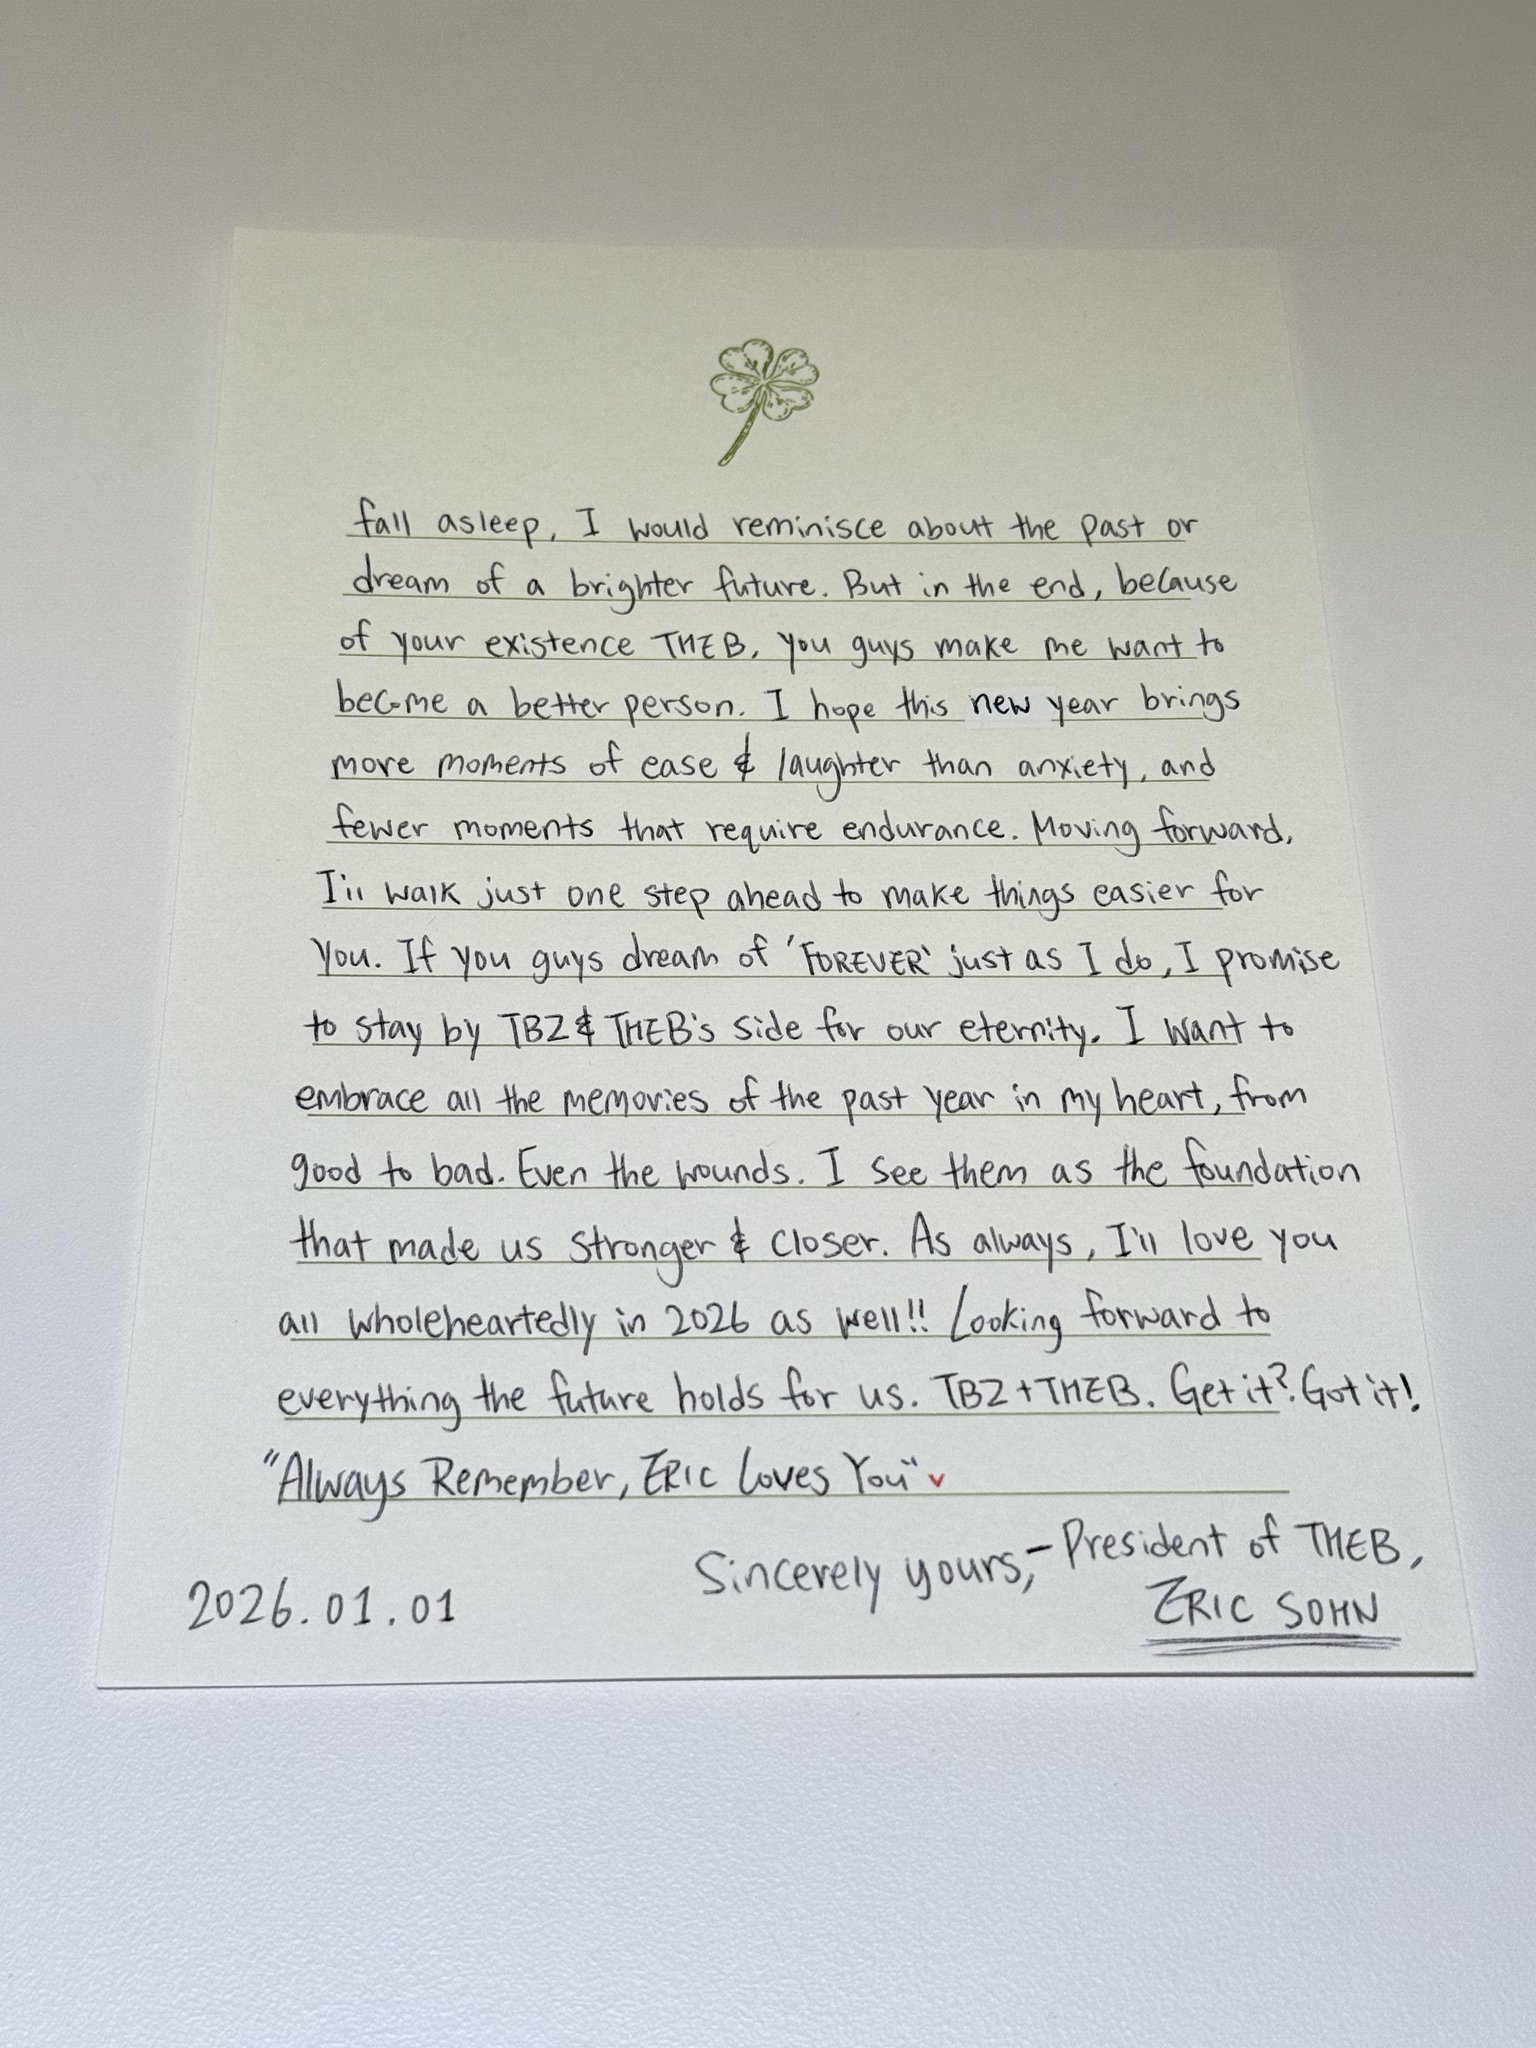 fall asleep, I would reminisce about the past or
dream of a brighter future. But in the end, because
of your existence THEB, you guys make me want to
become a better person. I hope this new year brings
more moments of ease & laughter than anxiety, and
fewer moments that require endurance. Moving forward,
I'll walk just one step ahead to make things easier for
you. If you guys dream of 'FOREVER' just as I do, I promise
to stay by TBZ & THEB's side for our eternity. I want to
embrace all the memories of the past year in my heart, from
good to bad. Even the wounds. I see them as the foundation
that made us stronger & closer. As always, I'll love you
all wholeheartedly in 2026 as well!! Looking forward to
everything the future holds for us. TBZ+THEB. Get it? Got it!
"Always Remember, ERIC Loves You"
Sincerely yours, - President of THEB,
2026.01.01 ERIC SOHN